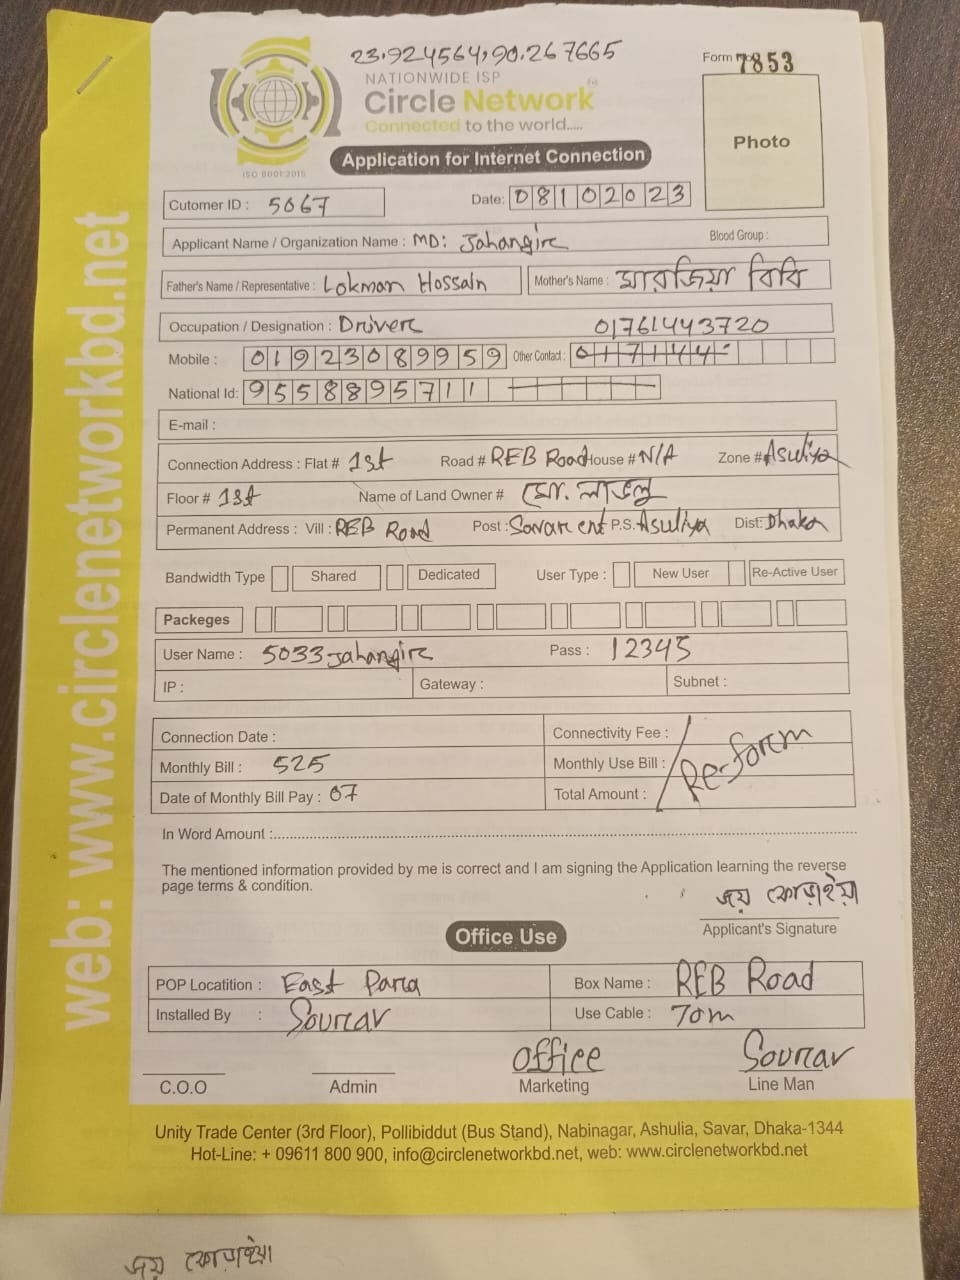 23.924564,90.267665
NATIONWIDE ISP
Circle Network
Connected to the world.....
ISO 9001:2015
Form No 7853
Photo
Application for Internet Connection
Cutomer ID : 5067 Date: 08102023
Applicant Name / Organization Name : MD: Jahangir Blood Group :
Father's Name / Representative : Lokman Hossain Mother's Name : মারজিয়া বিবি
Occupation / Designation : Driver 01761443720
Mobile : 01923089959 Other Contact : 017144
National Id: 9558895711
E-mail :
Connection Address : Flat # 1st Road # REB Road House # N/A Zone # Asuliya
Floor # 1st Name of Land Owner # মো.
Permanent Address : Vill : REB Road Post : Savar cent P.S. Asuliya Dist: Dhaka
Bandwidth Type Shared Dedicated User Type : New User Re-Active User
Packeges
User Name : 5033jahangir Pass : 12345
IP : Gateway : Subnet :
Connection Date : Connectivity Fee :
Monthly Bill : 525 Monthly Use Bill : Re-form
Date of Monthly Bill Pay : 07 Total Amount :
In Word Amount :
The mentioned information provided by me is correct and I am signing the Application learning the reverse
page terms & condition.
Applicant's Signature
Office Use
POP Locatition : East Para Box Name : REB Road
Installed By : Sourav Use Cable : 70m
office Sourav
C.O.O Admin Marketing Line Man
Unity Trade Center (3rd Floor), Pollibiddut (Bus Stand), Nabinagar, Ashulia, Savar, Dhaka-1344
Hot-Line: + 09611 800 900, info@circlenetworkbd.net, web: www.circlenetworkbd.net
web: www.circlenetworkbd.net